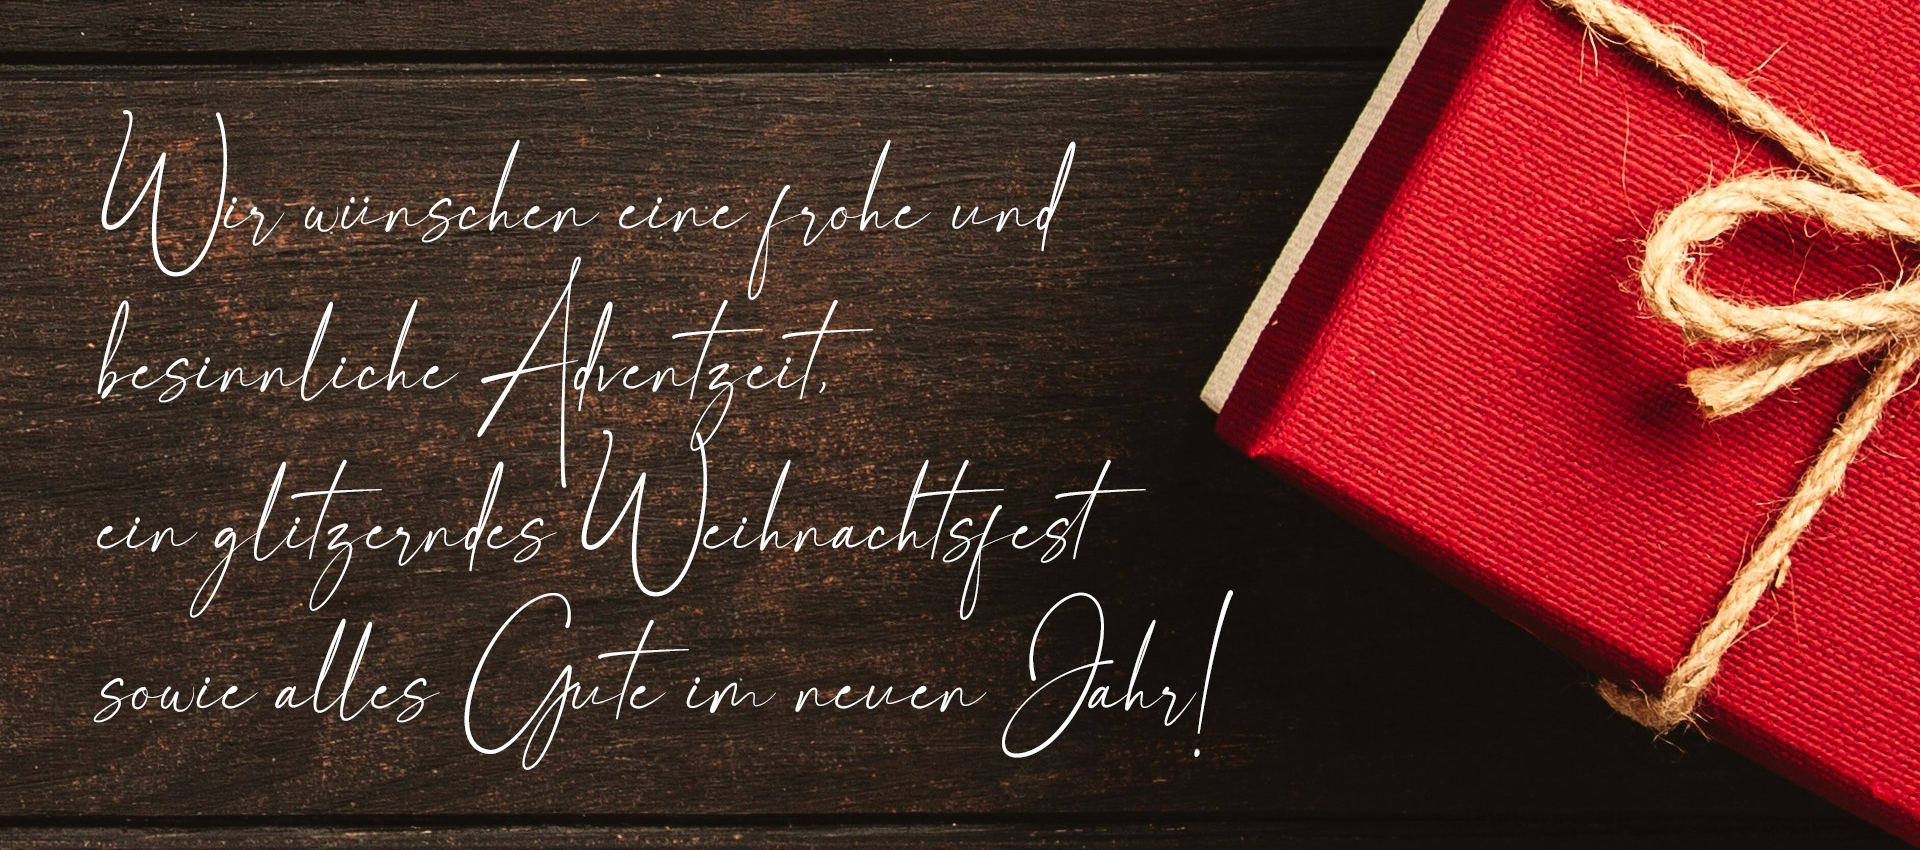 Wir wünschen eine frohe und
besinnliche Adventzeit,
ein glitzerndes Weihnachtsfest
sowie alles Gute im neuen Jahr!